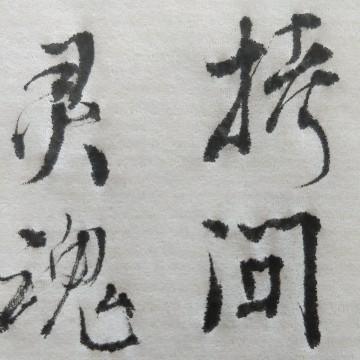 拷问
灵魂